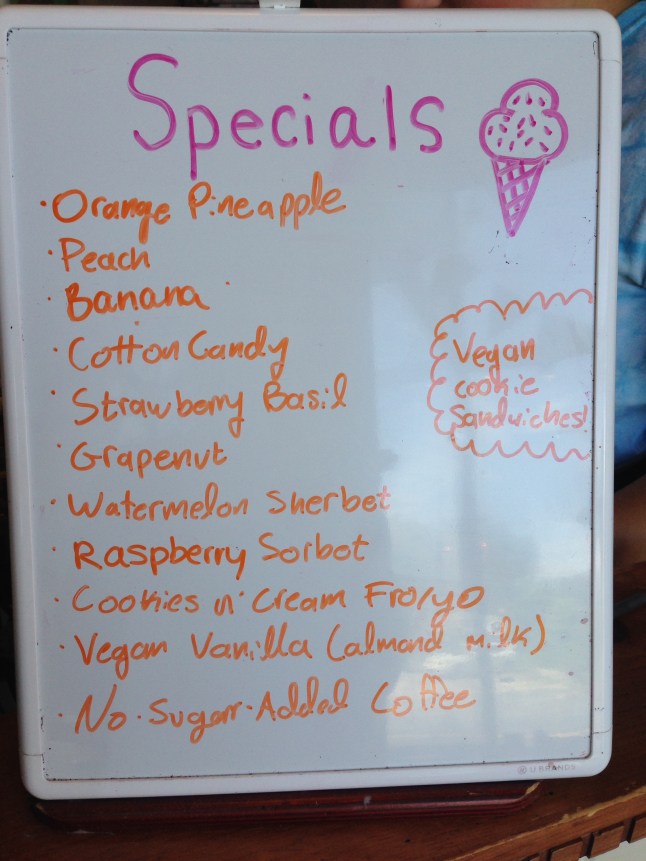 Specials
· Orange Pineapple
· Peach
· Banana
· Cotton Candy
· Strawberry Basil
· Grapenut
· Watermelon Sherbet
· Raspberry Sorbot
· Cookies n' Cream Fro/yo
· Vegan Vanilla (almond milk)
· No·Sugar·Added Coffee
Vegan
cookie
Sandwiches!
U BRANDS